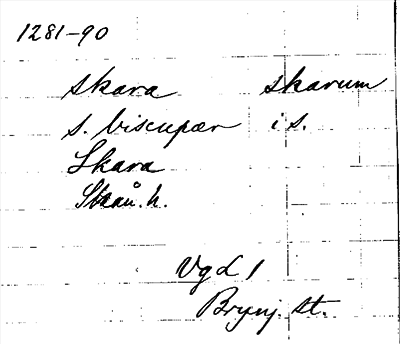 1281-90
skara skarum
s. biscupær i s.
Skara
Skån. h.
VgL 1
Brynj. st.